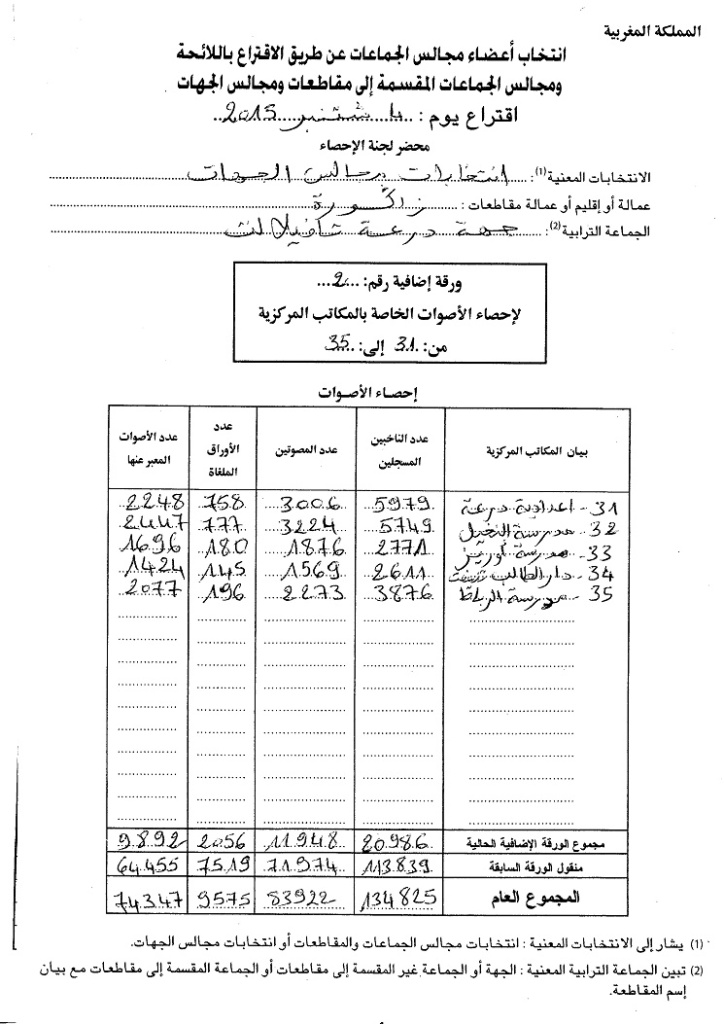 المملكة المغربية
انتخاب أعضاء مجالس الجماعات عن طريق الاقتراع باللائحة
ومجالس الجماعات المقسمة إلى مقاطعات ومجالس الجهات
اقتراع يوم : 4 شتنبر 2015
محضر لجنة الإحصاء
الانتخابات المعنية(1): انتخابات مجالس الجهات
عمالة أو إقليم أو عمالة مقاطعات : زاكورة
الجماعة الترابية(2): جهة درعة تافيلالت
ورقة إضافية رقم: 2
لإحصاء الأصوات الخاصة بالمكاتب المركزية
من: 31 إلى: 35
إحصاء الأصوات
بيان المكاتب المركزية | عدد الناخبين المسجلين | عدد المصوتين | عدد الأوراق الملغاة | عدد الأصوات المعبر عنها
31 - اعدادية درعة | 5979 | 3006 | 758 | 2248
32 - مدرسة النخيل | 5749 | 3224 | 777 | 2447
33 - مدرسة اوريز | 2771 | 1876 | 180 | 1696
34 - دار الطالب | 2611 | 1569 | 145 | 1424
35 - مدرسة الرباط | 3876 | 2273 | 196 | 2077
مجموع الورقة الإضافية الحالية | 20986 | 11948 | 2056 | 9892
منقول الورقة السابقة | 113839 | 71974 | 7519 | 64455
المجموع العام | 134825 | 83922 | 9575 | 74347
(1) يشار إلى الانتخابات المعنية : انتخابات مجالس الجماعات والمقاطعات أو انتخابات مجالس الجهات.
(2) تبين الجماعة الترابية المعنية : الجهة أو الجماعة غير المقسمة إلى مقاطعات أو الجماعة المقسمة إلى مقاطعات مع بيان
إسم المقاطعة.